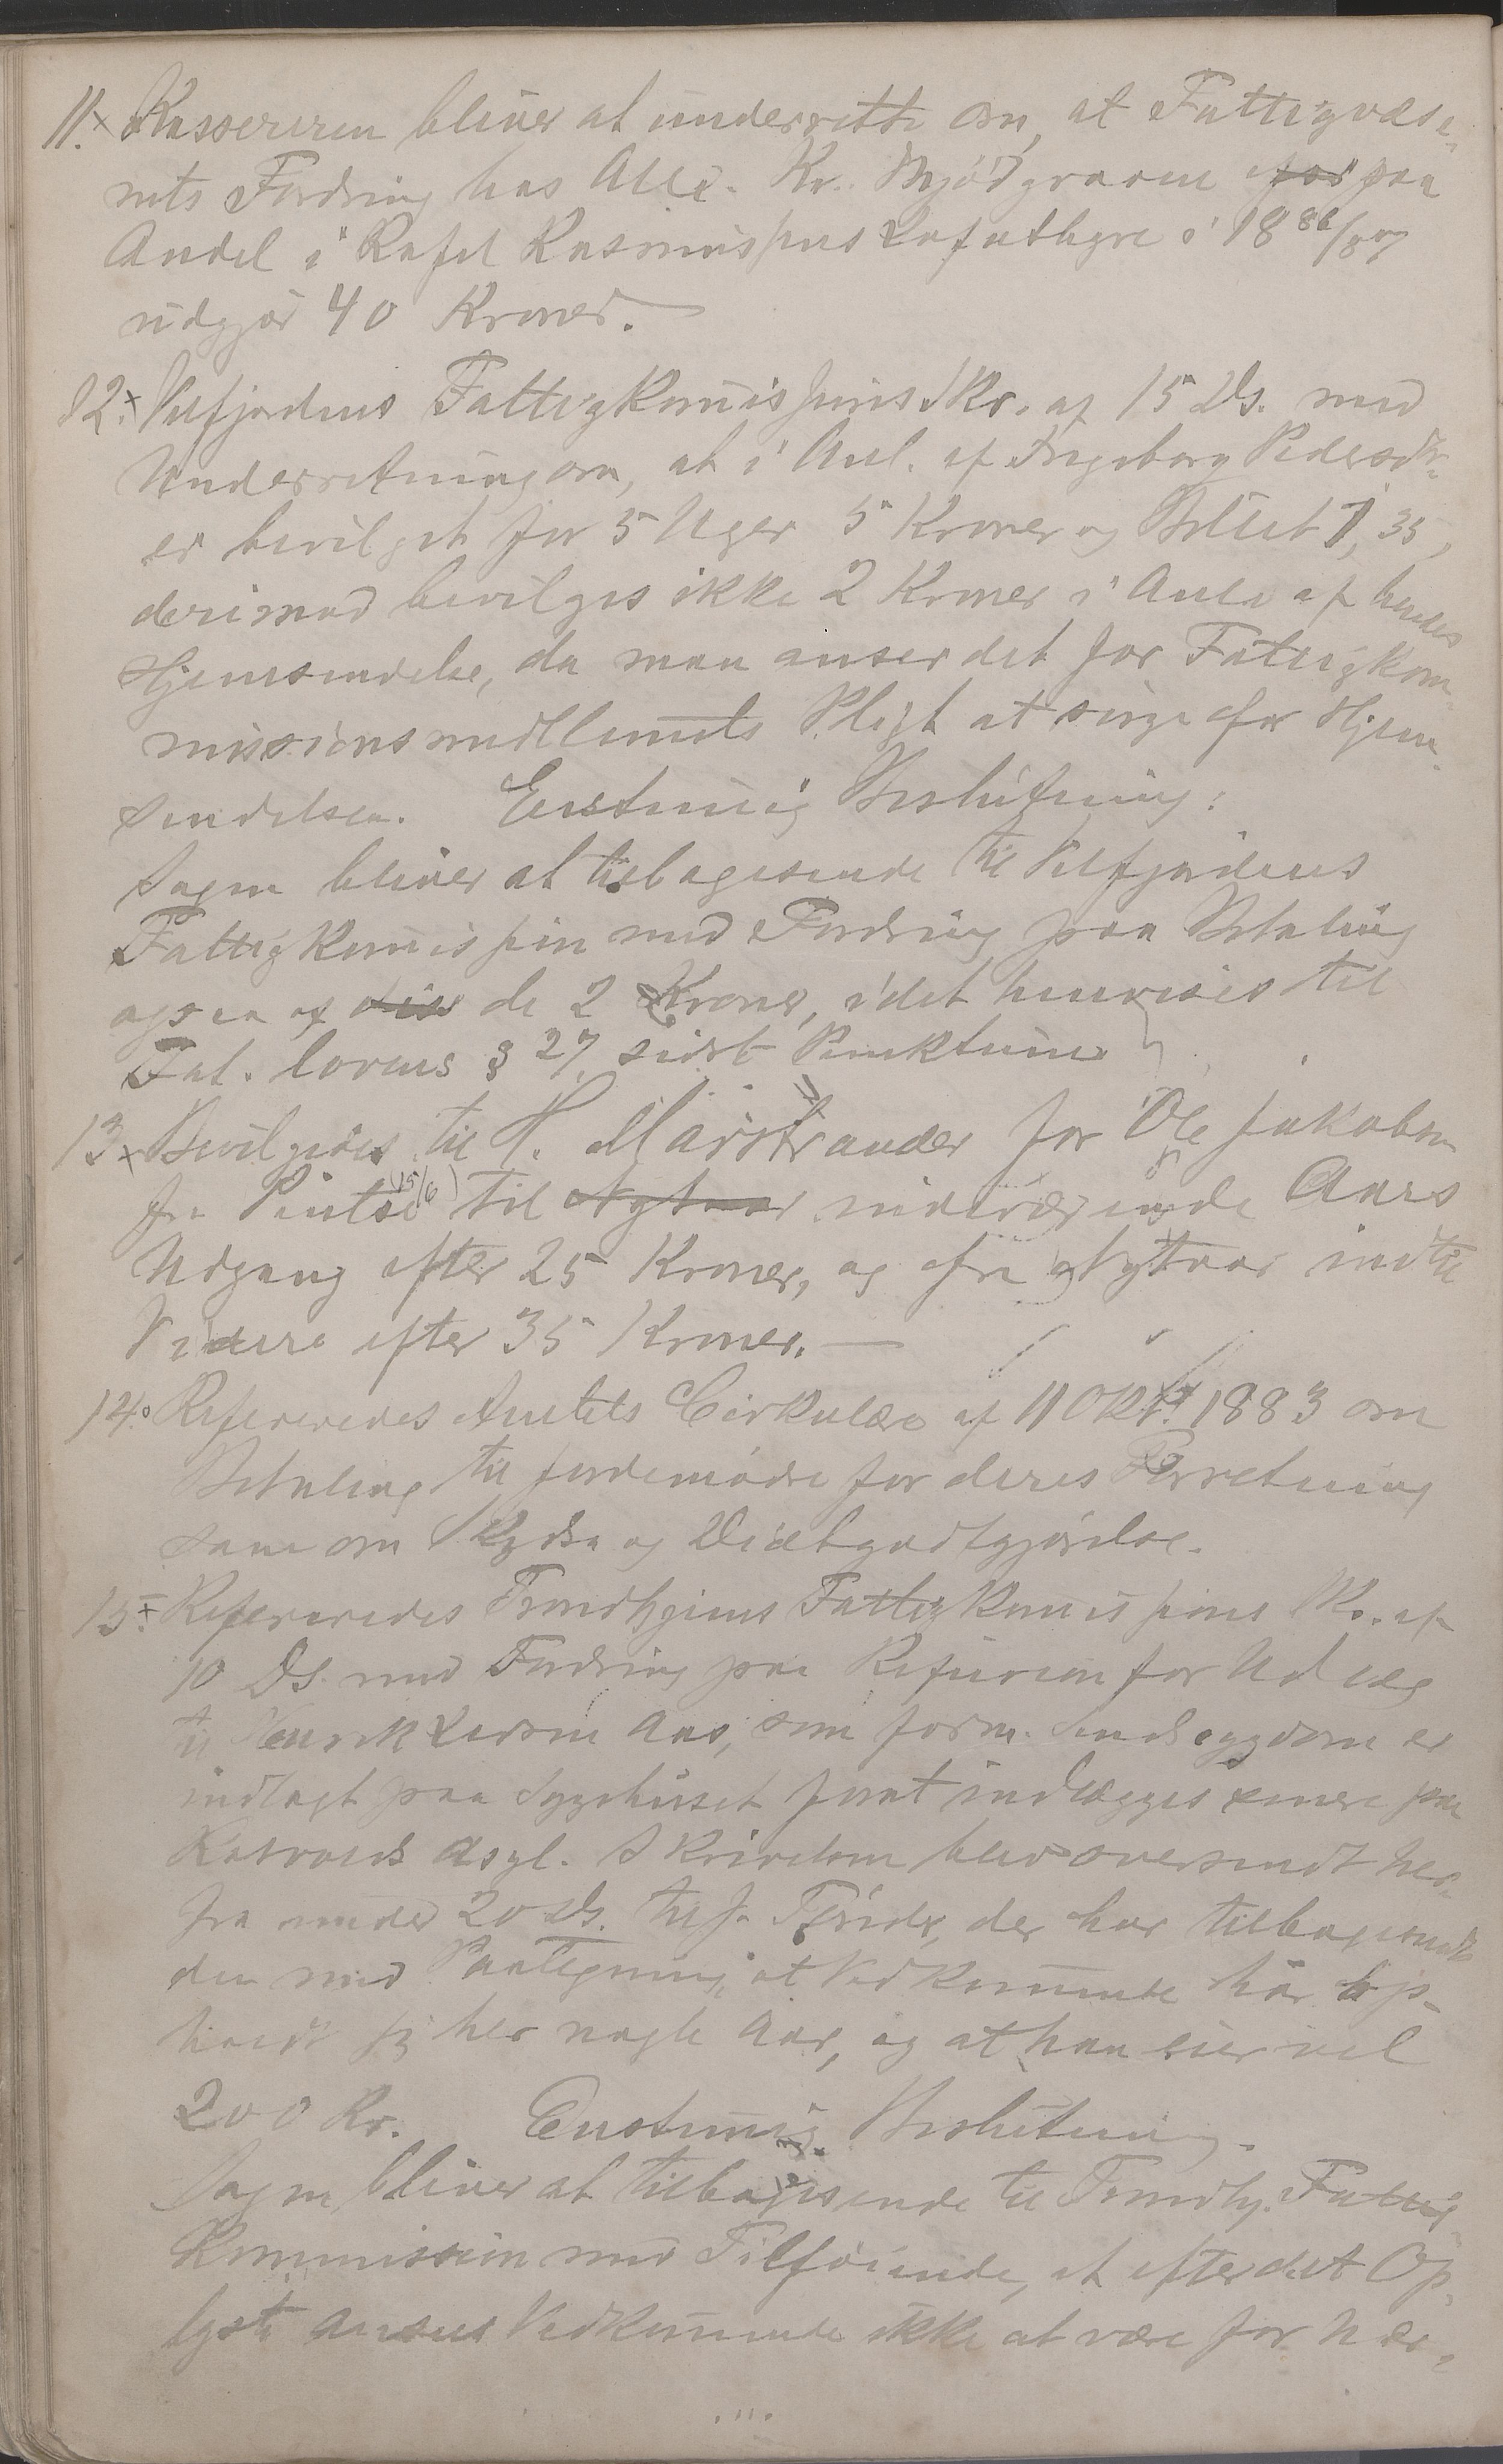 11.x Kassereren bliver at underrette om, at Fattigvæse-
nets Fordring hos Kr. Mjødgraven for paa
Andel i Rafel Rasmussens i 1886/87
udgjør 40 Kroner.
12.x Velfjordens Fattigkommissions Skr. af 15 Ds. med
Underretning om, at i Anl. af Ingeborg Pedersdtr.
er bevilget for 5 Uger 5 Kroner og Billet 1,35,
derimod bevilges ikke 2 Kroner i Anl. af hendes
Hjemsendelse, da man anser det for Fattigkom-
missionsmedlemets Pligt at sørge for Hjem-
sendelsen. Enstemig Beslutning:
Sagen bliver at tilbagesende til Velfjordens
Fattigkommission med Fordring paa Betaling
ogsaa af diss de 2 Kroner, idet henvises til
Fat. lovens § 27, sidst Punktum
13x Bevilgedes til H. Marstrander for Ole Jakobsen
fra Pintse (15/6) til Nytaar nuværende Aars
Udgang efter 25 Kroner, og fra Nytaar indtil
Videre efter 35 Kroner.
14. Refereredes Amtets Cirkulære af 11 Okt. 1883 om
Betaling til Jordemødre for deres Forretning
samt om Skyds og Diætgodtgjørelse.
15.x Refereredes Trondhjems Fattigkommissions Skr. af
10 Ds. med Fordring paa Refusion for Udlæg
til Larsen Aas, som form. Sindssygdom er
indlagt paa Sygehuset for at indlægges senere paa
Rotvolds Asyl. Skrivelsen blev oversendt her-
fra under 20 Ds. til der har tilbagesendt
den med Paategning, at Vedkommende har op-
holdt sig her nogle Aar, og at han eier vel
200 Kr. Enstemig Beslutning.
Sagen bliver at tilbagesende til Trondhj. Fattig
Kommission med Tilføiende, at efter det Op-
lyste ansees Vedkommende ikke at være for Nær-